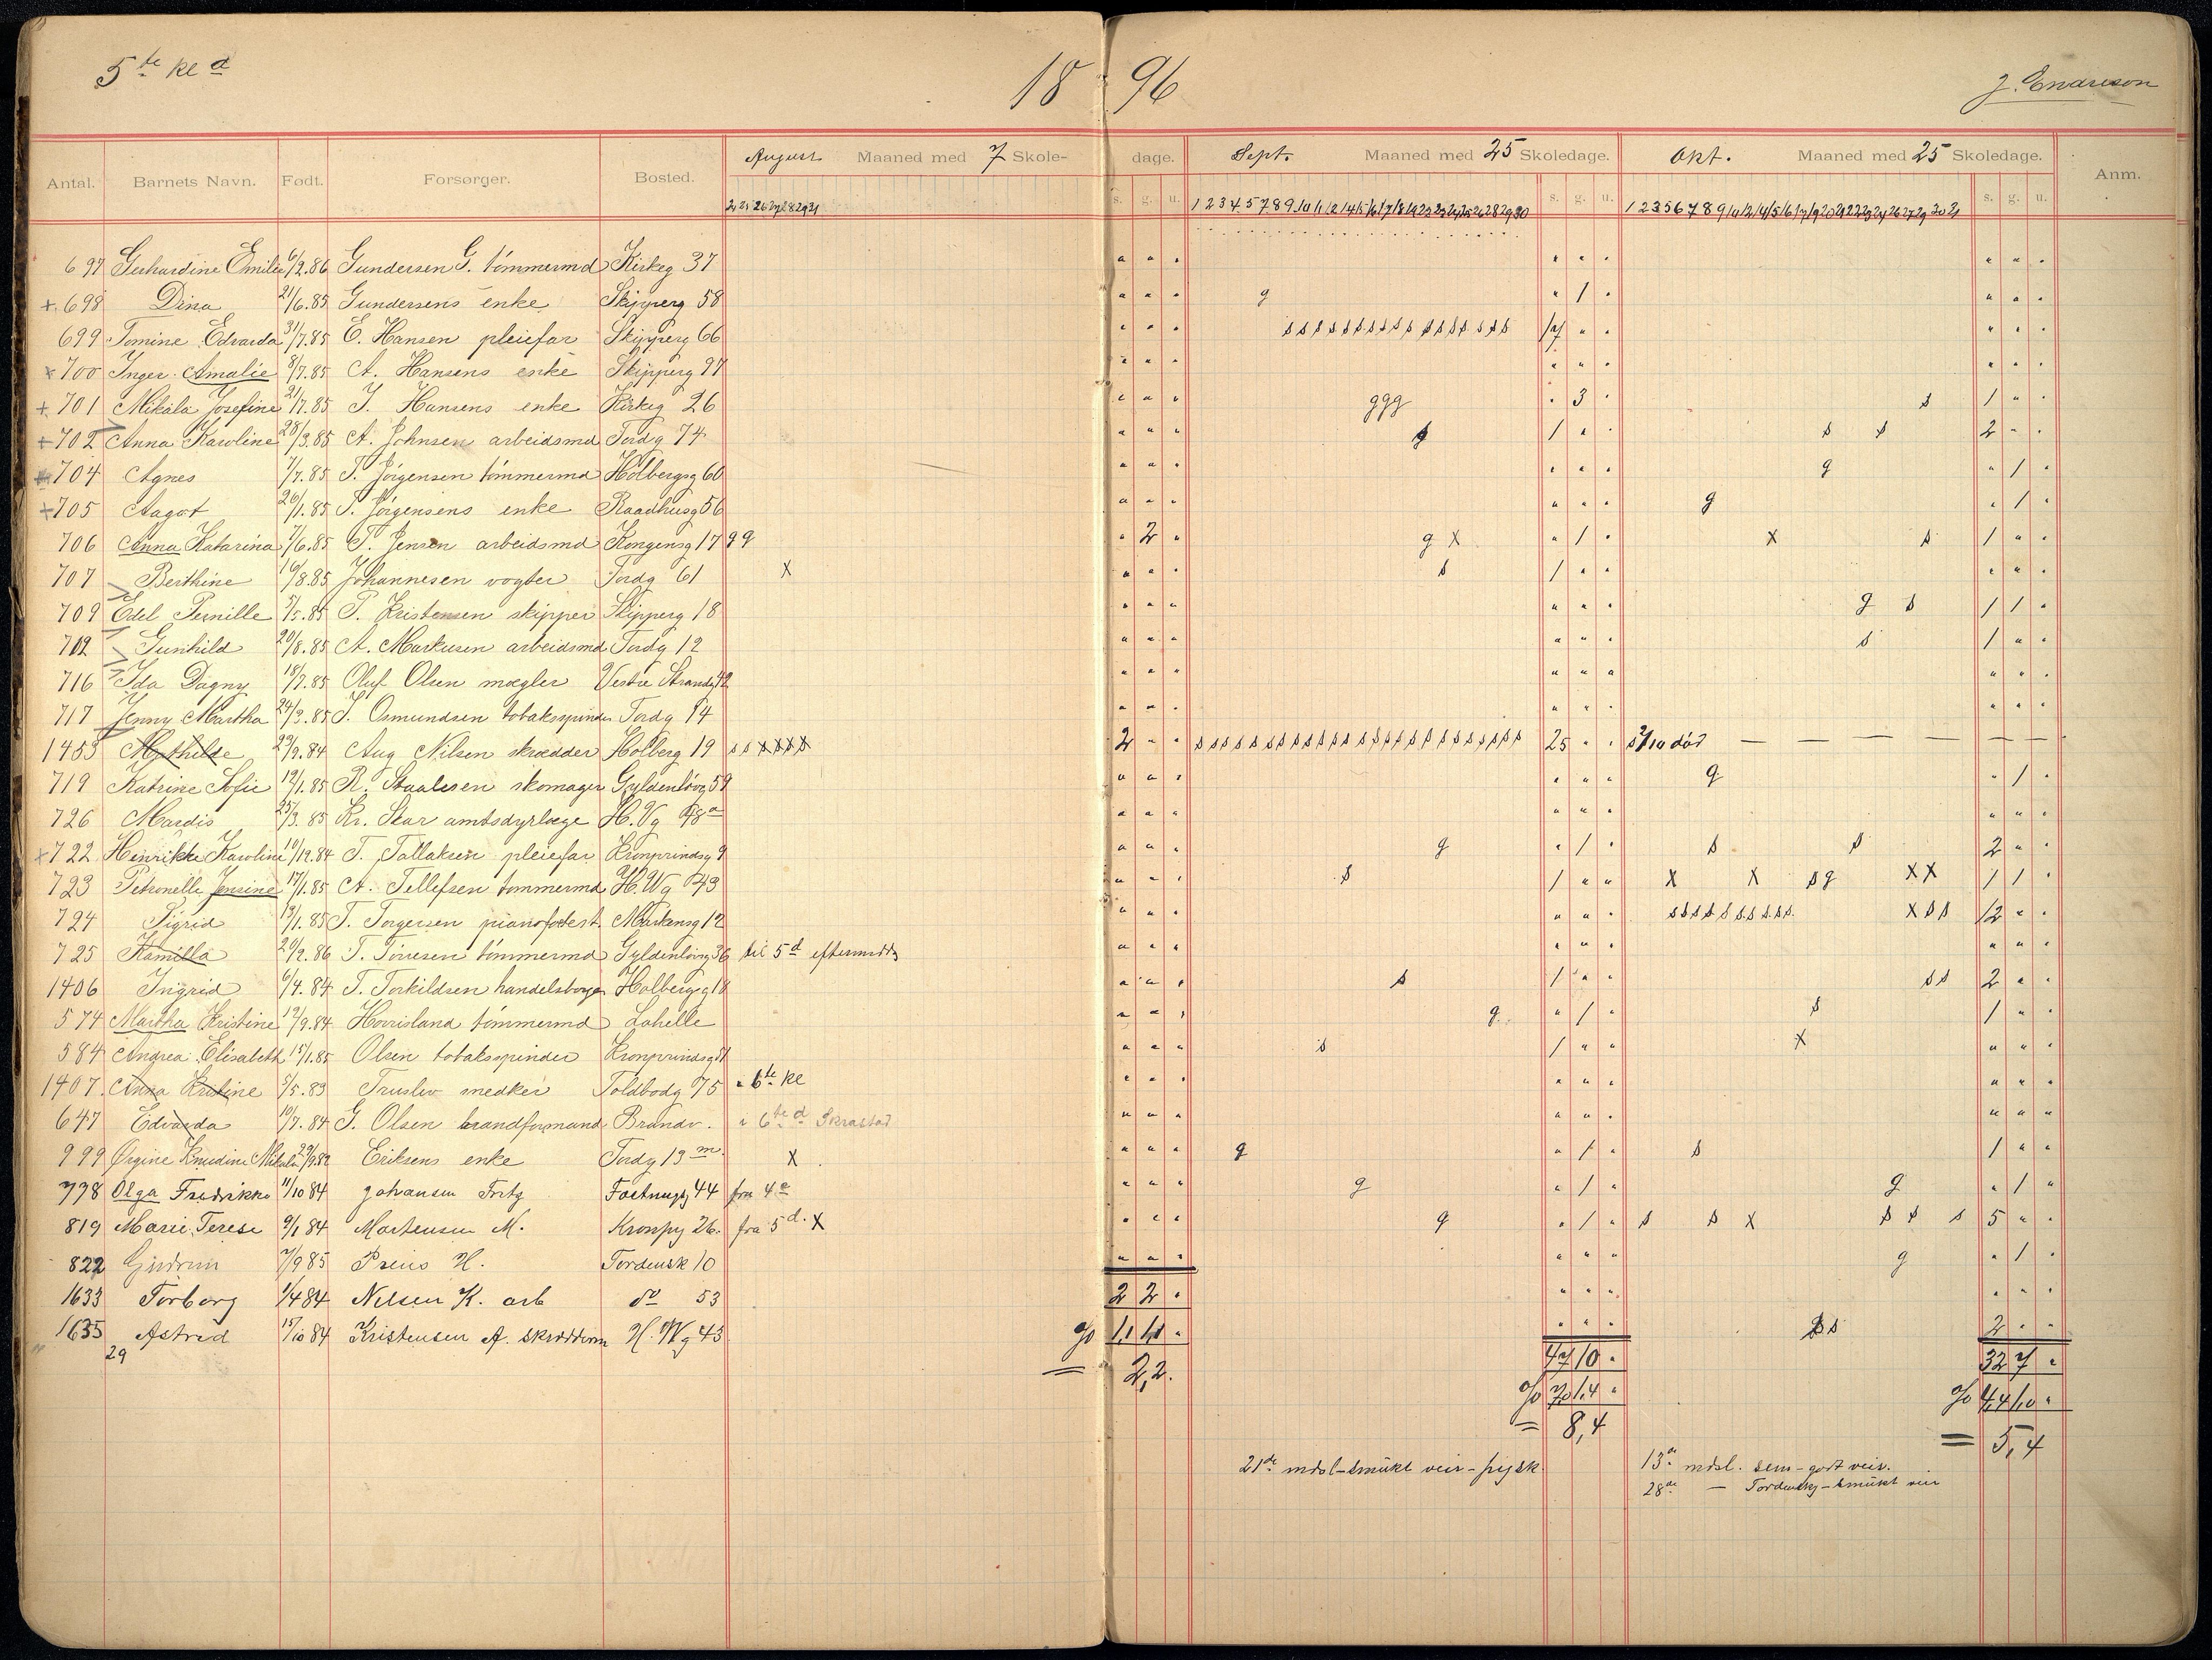 5te kl d 18 96 J. Endreson
Antal. Barnets Navn. Født. Forsørger. Bosted. August Maaned med 7 Skole- dage. Sept. Maaned med 25 Skoledage. Okt. Maaned med 25 Skoledage. Anm.
s. g. u. s. g. u. s. g. u.
697 Gerhardine Emilie 6/2.86 Gundersen G. tømmermd Kirkeg 37
+ 698 Dina 21/6.85 Gundersens enke Skipperg 58 g 1
699 Tomine Edvarda 31/7.85 E. Hansen pleiefar Skipperg 66 s s s s s s s s s s s s s s s s s 17
x 700 Inger Amalie 8/7.85 A. Hansens enke Skipperg 97
+ 701 Mikala Josefine 21/7.85 J. Hansens enke Kirkeg 26 g g g 3 s 1
+ 702 Anna Karoline 28/3.85 A. Johnsen arbeidsmd Tordg 74 s 1 s s 2
704 Agnes 7/7.85 T. Jørgensen tømmermd Holbergsg 60 g 1
+ 705 Aagot 26/1.85 J. Jørgensens enke Raadhusg 56 g 1
706 Anna Katarina 7/6.85 T. Jensen arbeidsmd Kongensg 17 g g 2 g X 1 X s 1
707 Berthine 16/8.85 Johannesen vogter Tordg 61 X s 1
709 Edel Pernille 5/5.85 P. Kristensen skipper Skipperg 18 g s 1 1
712 Gunhild 20/8.85 A. Markusen arbeidsmd Tordg 12 s 1
716 Ida Dagny 18/7.85 Oluf Olsen mægler Vestre Strandg 42
717 Jenny Martha 24/3.85 J. Osmundsen tobakspinder Tordg 14
1453 Mathilde 29/9.84 Aug Nilsen skrædder Holberg 19 s s X X X X X 2 s s s s s s s s s s s s s s s s s s s s s s s s s 25 3/10 død — — — — — —
719 Katrine Sofie 12/1.85 R. Staalesen skomager Gyldenløvg 59 g 1
726 Mardis 25/3.85 Kr. Skar amtsdyrlæge H. Vg 48a
x 722 Henrikke Karoline 10/12.84 T. Tallaksen pleiefar Kronprindsg 9 g 1 s s 2
723 Petronelle Jensine 17/1.85 A. Tellefsen tømmermd H. Wg 43 s 1 X X s g X X 1 1
724 Sigrid 13/1.85 T. Torgersen pianofortest. Markensg 12 s s s s s s s s s s X s s 12
725 Kamilla 20/2.86 T. Tørresen tømmermd Gyldenløvsg 36 til 5d eftermidds
1406 Ingrid 6/4.84 T. Torkildsen handelsborger Holbergsg 18 s 1 s s 2
574 Martha Kristine 12/9.84 Hovrisland tømmermd Lahelle g 1 s 1
584 Andrea Elisabeth 15/1.85 Olsen tobakspinder Kronprindsg 51 s 1 X
1407. Anna Kristine 5/5.83 Truslev snedker Toldbodg 75 i 6te kl
647 Edvarda 10/7.84 G. Olsen brandformand Brandv. i 6te d Skrastad
999 Ørgine Knudine Mikala 29/9.82 Eriksens enke Tordg 13m. X g 1 s 1
778 Olga Fredrikke 11/10 84 Johansen Fritz Fæstningsg 44 fra 4e g 1 g 1
819 Marie Terese 9/1 84 Mortensen M. Kronpg 26. fra 5d. X g 1 s s X s s s 5
822 Gudrun 7/9 85 Preus H. Tordensk 10 g 1
1633 Torborg 1/4 84 Nilsen K. arb do 53 2 2
1635 Astrid 15/10 84 Kristensen A. skrædderm H. Wg 43 % 1,1 1,1 s s 2
29 = 2,2. 47 10 32 7
% 7,0 1,4 % 4,4 1,0
= 8,4 = 5,4
21de mdsl - smukt veir - fysk. 13de mdsl. sem - godt veir.
28de — Tordenskj - smukt veir